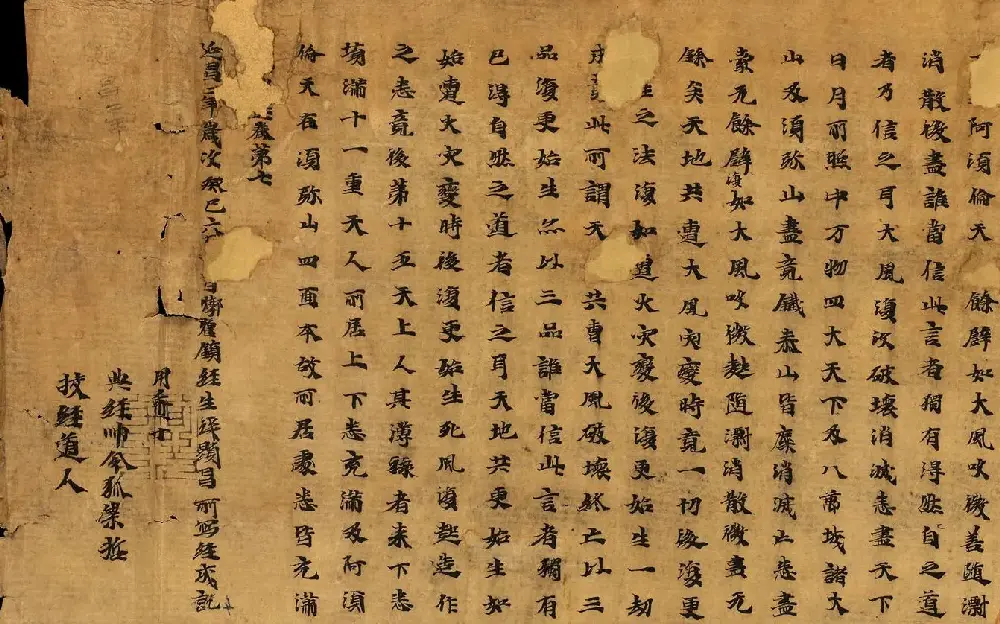 阿須倫天 餘譬如大風吹微善随㵎
消散㣲盡誰當信此言者獨有得㸐自之道
者乃信之耳大風復次破壞消滅悉盡天下
日月所照中万物四大天下及八万城諸大
山及須弥山盡竟鐵泰山皆糜消滅亡悉盡
索无餘譬復如大風吹微塵随㵎消散㣲盡无
餘矣天地共遭大風灾變時竟一切後復更
生之法復如 遭火灾變後復更始生一劫
此所謂天 共曹大風破壞終亡以三
品復更始生㸐以三品誰當信此言者獨有
已得自㸐之道者信之耳天地共更始生如
始遭火灾變時後復更始生死風復起造作
之悉竟後第十五天上人其薄祿者来下悉
填滿十一重天人所居上下悉充滿及阿須
倫天在須弥山四面本故所居處悉皆充滿
卷第七
延昌二年歲次癸巳六 敦煌鎮經生 顯昌所寫經成訖
用帋
典經帅令狐崇哲
挍經道人